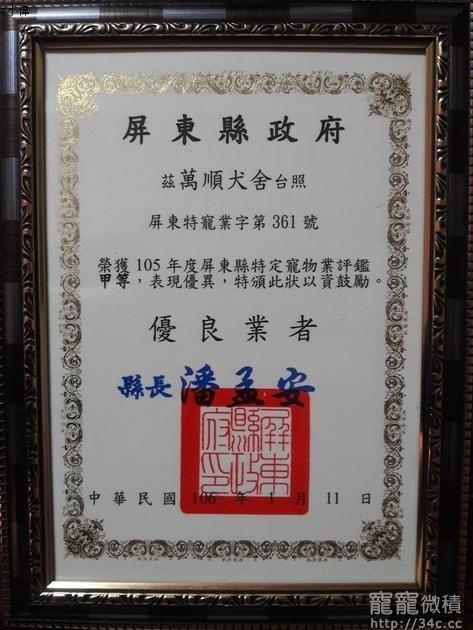 屏東縣政府
茲萬順犬舍台照
屏東特寵業字第361號
榮獲105年度屏東縣特定寵物業評鑑
甲等，表現優異，特頒此狀以資鼓勵。
優良業者
縣長潘孟安
屏東縣政府印
中華民國106年1月11日
寵寵微積
http://34c.cc